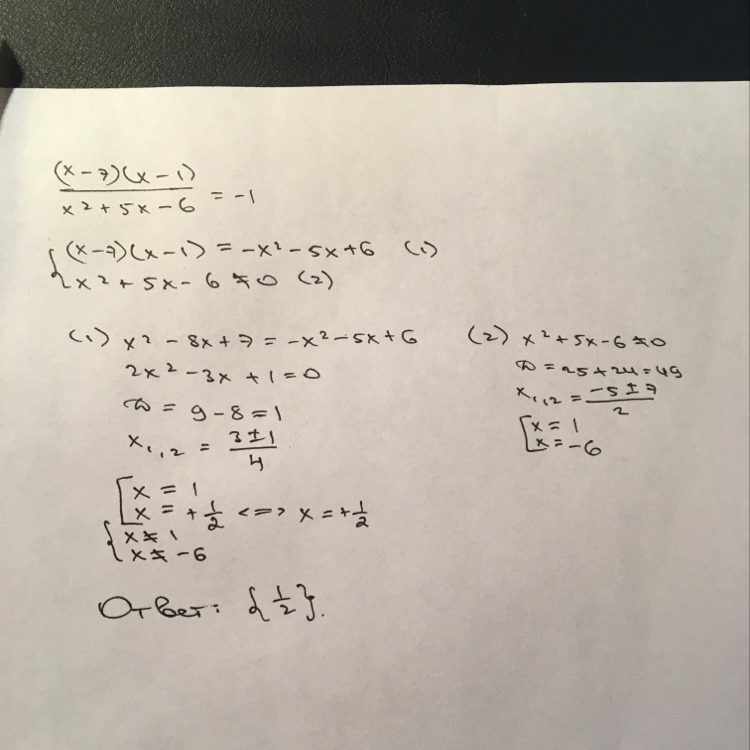 (x-7)(x-1)
x²+5x-6 = -1
{(x-7)(x-1) = -x²-5x+6 (1)
x²+5x-6≠0 (2)
(1) x²-8x+7=-x²-5x+6
2x²-3x+1=0
D=9-8=1
x₁,₂ = 3±1
4
[x=1
x=+1/2 <=> x=+1/2
{x≠1
x≠-6
Ответ: {1/2}.
(2) x²+5x-6≠0
D=25+24=49
x₁,₂ = -5±7
2
[x=1
x=-6